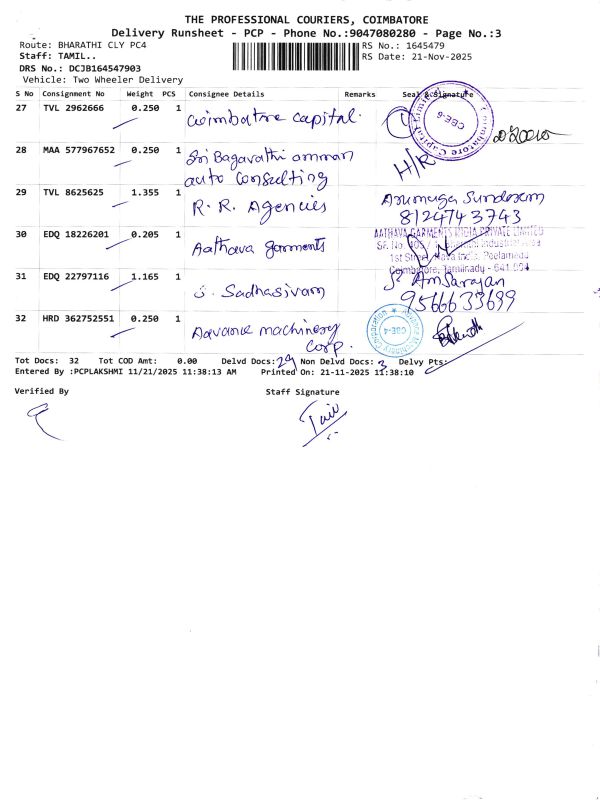 THE PROFESSIONAL COURIERS, COIMBATORE
Delivery Runsheet - PCP - Phone No.:9047080280 - Page No.:3
Route: BHARATHI CLY PC4 RS No.: 1645479
Staff: TAMIL.. RS Date: 21-Nov-2025
DRS No.: DCJB164547903
Vehicle: Two Wheeler Delivery
S No Consignment No Weight PCS Consignee Details Remarks Seal & Signature
27 TVL 2962666 0.250 1 Coimbatore capital.
Coimbatore Capital Limited CBE-6
28 MAA 577967652 0.250 1 Sri Bagavathi amman
auto Consulting H/R
29 TVL 8625625 1.355 1 R. R. Agencies Arumuga Sundaram
8124743743
30 EDQ 18226201 0.205 1 Aathava garments
AATHAVA GARMENTS INDIA PRIVATE LIMITED
1st Street, Peelamedu
Coimbatore, Tamilnadu - 641 004
31 EDQ 22797116 1.165 1 S. Sadhasivam
9566633699
32 HRD 362752551 0.250 1 Advance machinery
corp.
Advance Machinery Corporation CBE-4
Tot Docs: 32 Tot COD Amt: 0.00 Delvd Docs: 29 Non Delvd Docs: 3 Delvy Pts:
Entered By :PCPLAKSHMI 11/21/2025 11:38:13 AM Printed On: 21-11-2025 11:38:10
Verified By Staff Signature